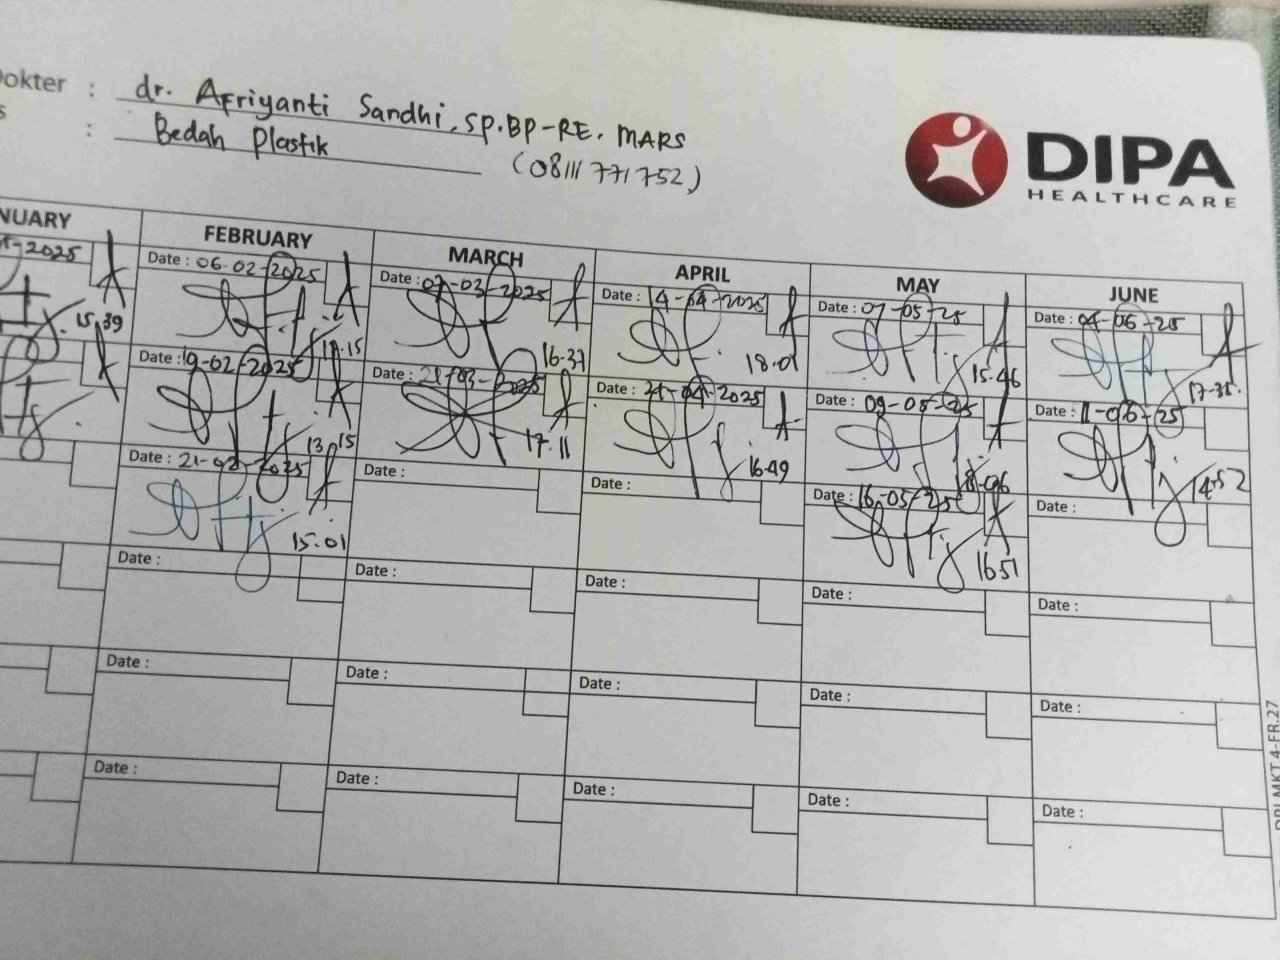 Dokter : dr. Afriyanti Sandhi, SP.BP-RE. MARS
s : Bedah Plastik
(08111771752)
DIPA
HEALTHCARE
NUARY FEBRUARY MARCH APRIL MAY JUNE
-2025 Date : 06-02-2025 Date : 07-03-2025 Date : 14-04-2025 Date : 07-05-25 Date : 04-06-25
15.39 16.37 18.01 15.46 17.35
Date : 19-02-2025 Date : 21-03-2025 Date : 21-04-2025 Date : 09-05-25 Date : 11-06-25
13.15 17.11 16.49 18.06 14.52
Date : 21-02-2025 Date : Date : Date : 16-05-25 Date :
15.01 16.51
Date : Date : Date : Date : Date :
Date : Date : Date : Date : Date :
Date : Date : Date : Date : Date :
MKT 4-FR.27